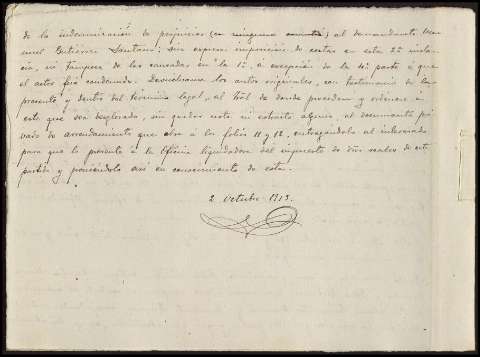 de la indemnización de perjuicios (en ninguna cuantía) al demandante Manuel Gutiérrez Santano; sin expresa imposición de costas en esta 2ª instancia, ni tampoco de las causadas en la 1ª á excepción de la 4ª parte á que
el actor fué condenado. Devuélvanse los autos originales, con testimonio de la
presente y dentro del término legal, al Tral de donde proceden y ordénese á
este que sea desglosado, sin quedar nota ni extracto alguno, el documento pri
vado de arrendamiento que obra á los folios 11 y 12, entregándolo al interesado
para que lo presente á la Oficina liquidadora del impuesto de dros reales de este
partido y poniéndolo así en conocimiento de esta.
2 Octubre 1913.